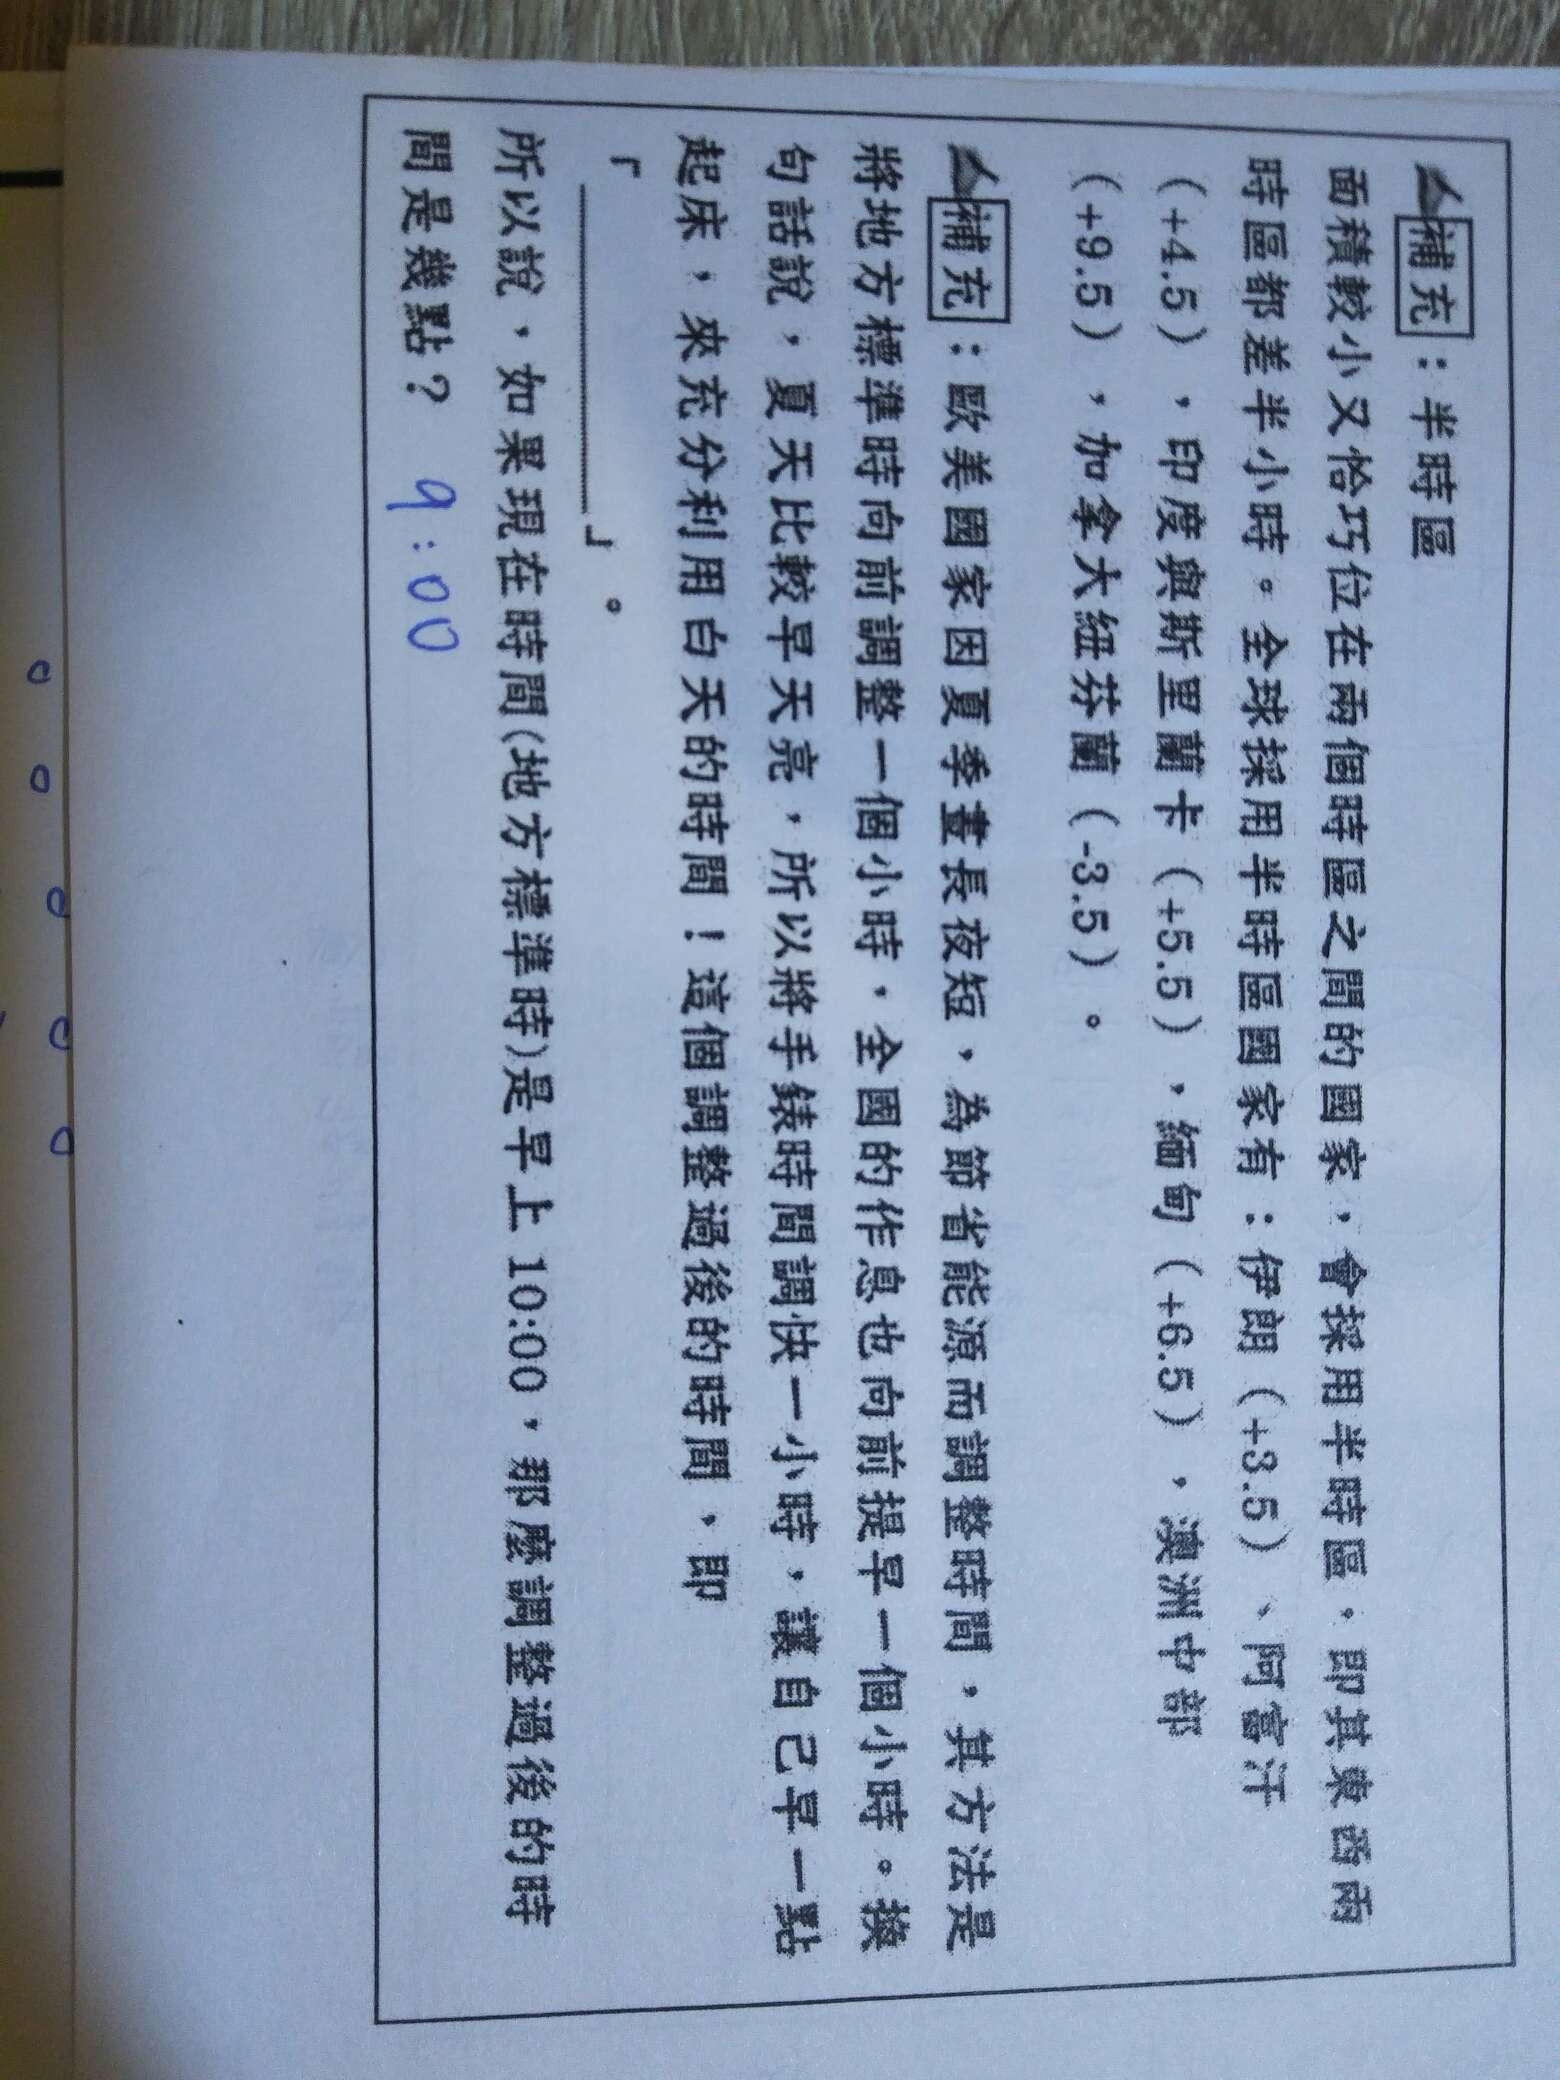 補充：半時區
面積較小又恰巧位在兩個時區之間的國家，會採用半時區，即其東西兩
時區都差半小時。全球採用半時區國家有：伊朗（+3.5）、阿富汗
（+4.5），印度與斯里蘭卡（+5.5），緬甸（+6.5），澳洲中部
（+9.5），加拿大紐芬蘭（-3.5）。
補充：歐美國家因夏季晝長夜短，為節省能源而調整時間，其方法是
將地方標準時向前調整一個小時，全國的作息也向前提早一個小時。換
句話說，夏天比較早天亮，所以將手錶時間調快一小時，讓自己早一點
起床，來充分利用白天的時間！這個調整過後的時間，即
「＿＿＿＿＿＿」。
所以說，如果現在時間(地方標準時)是早上10:00，那麼調整過後的時
間是幾點？ 9:00